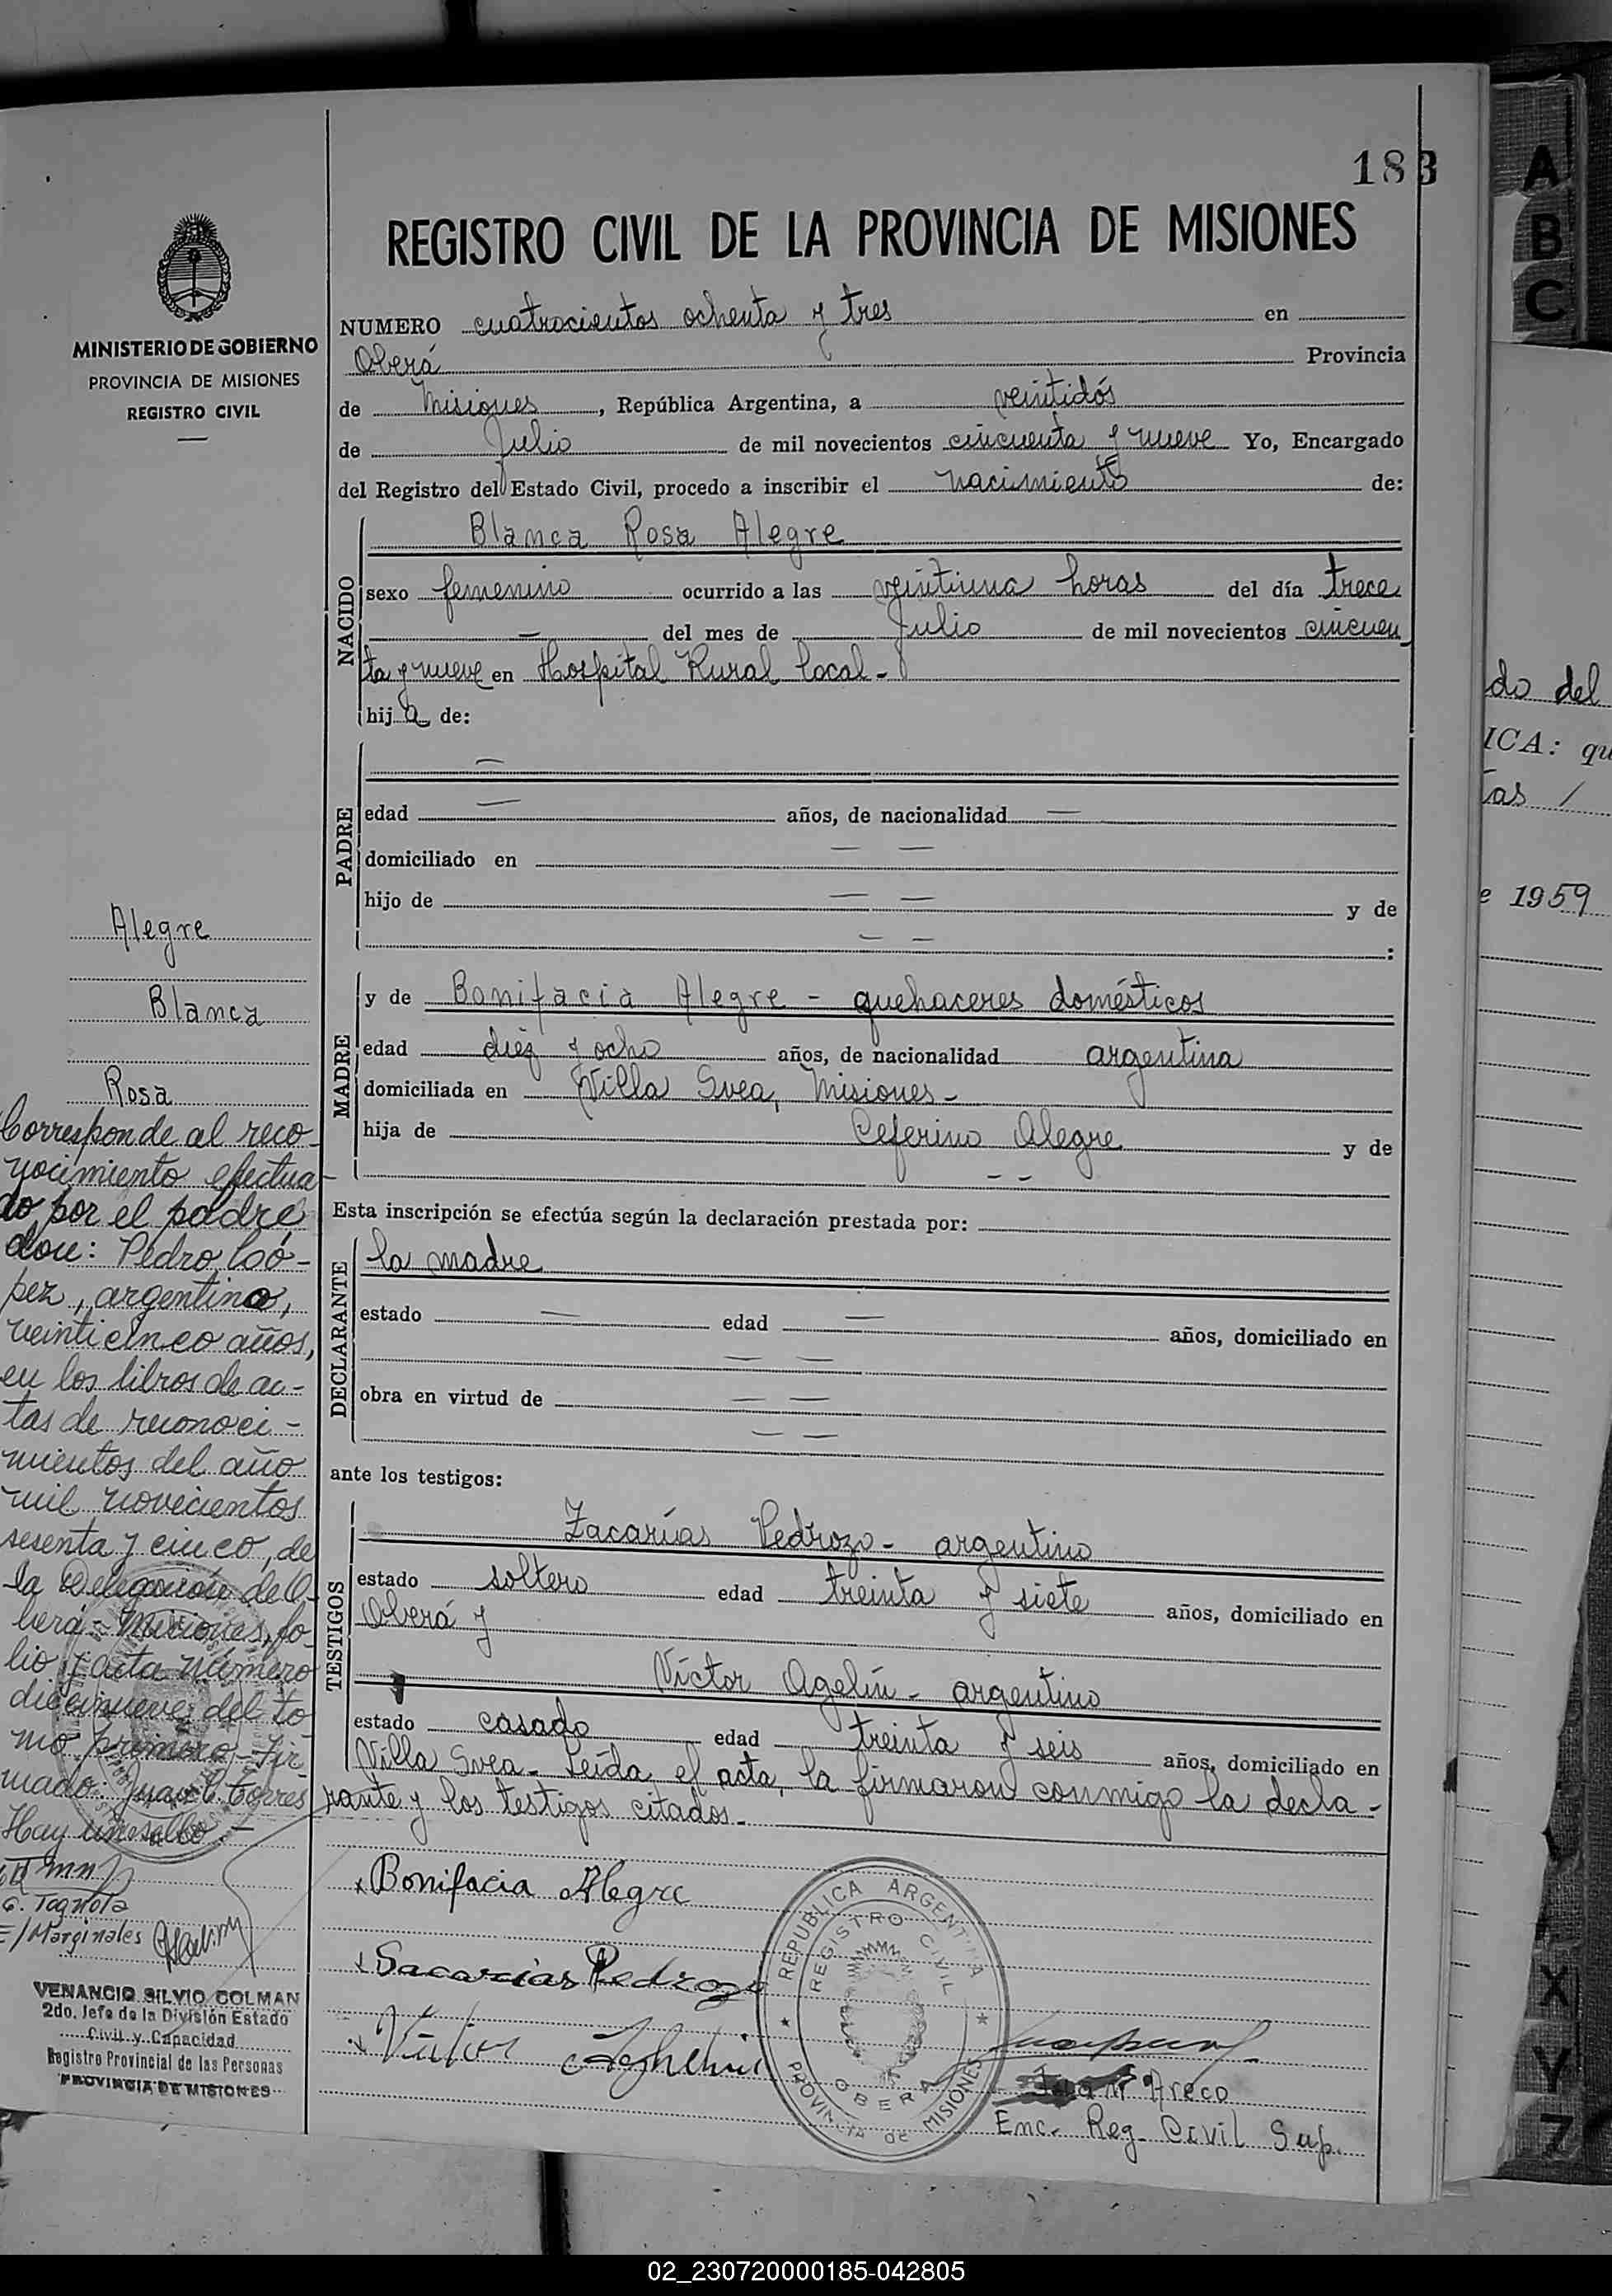 183
REGISTRO CIVIL DE LA PROVINCIA DE MISIONES
MINISTERIO DE GOBIERNO
PROVINCIA DE MISIONES
REGISTRO CIVIL
NUMERO cuatrocientos ochenta y tres en
Oberá Provincia
de Misiones, República Argentina, a veintidós
de Julio de mil novecientos cincuenta y nueve Yo, Encargado
del Registro del Estado Civil, procedo a inscribir el nacimiento de:
NACIDO
Blanca Rosa Alegre
sexo femenino ocurrido a las veintiuna horas del día trece
— del mes de Julio de mil novecientos cincuen
ta y nueve en Hospital Rural local-
hij a de:
PADRE
—
edad — años, de nacionalidad —
domiciliado en — —
hijo de — — y de
— — :
MADRE
y de Bonifacia Alegre - quehaceres domésticos
edad diez y ocho años, de nacionalidad argentina
domiciliada en Villa Svea, Misiones-
hija de Ceferino Alegre y de
- -
Esta inscripción se efectúa según la declaración prestada por:
DECLARANTE
la madre
estado — edad — años, domiciliado en
— —
obra en virtud de — —
— —
ante los testigos:
TESTIGOS
Zacarías Pedrozo - argentino
estado soltero edad treinta y siete años, domiciliado en
Oberá y
Víctor Agelín - argentino
estado casado edad treinta y seis años, domiciliado en
Villa Svea - Leída el acta, la firmaron conmigo la decla-
rante y los testigos citados.-
Bonifacia Alegre
Sacarias Pedrozo
REPUBLICA ARGENTINA
REGISTRO CIVIL
OBERA
PROVINCIA de MISIONES
Areco
Enc. Reg. Civil Sup.
Alegre
Blanca
Rosa
Corresponde al reco-
nocimiento efectua-
do por el padre
don: Pedro Ló-
pez, argentino,
veinticinco años,
en los libros de ac-
tas de reconoci-
mientos del año
mil novecientos
sesenta y cinco, de
la Delegación de O-
berá - Misiones, fo-
lio y acta número
diecinueve del to
mo primero - Fir
mado: Juan C. Torres
Hay un sello.-
G. Tognola
E/Marginales
VENANCIO SILVIO COLMAN
2do. Jefe de la División Estado
Civil y Capacidad
Registro Provincial de las Personas
PROVINCIA DE MISIONES
do del
ICA: qu
tas /
e 1959
A
B
C
X
Y
Z
02_230720000185-042805